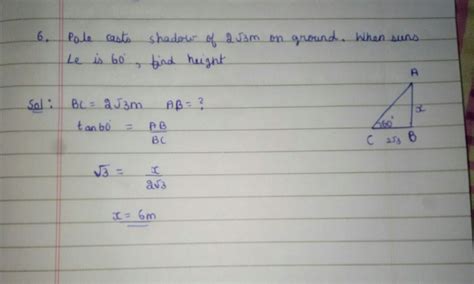 6. Pole casts shadow of 2√3m on ground. When suns
Le is 60°, find height
Sol: BC = 2√3m AB = ?
tan60° = AB
BC
√3 = x
2√3
x = 6m
A
x
60°
C 2√3 B